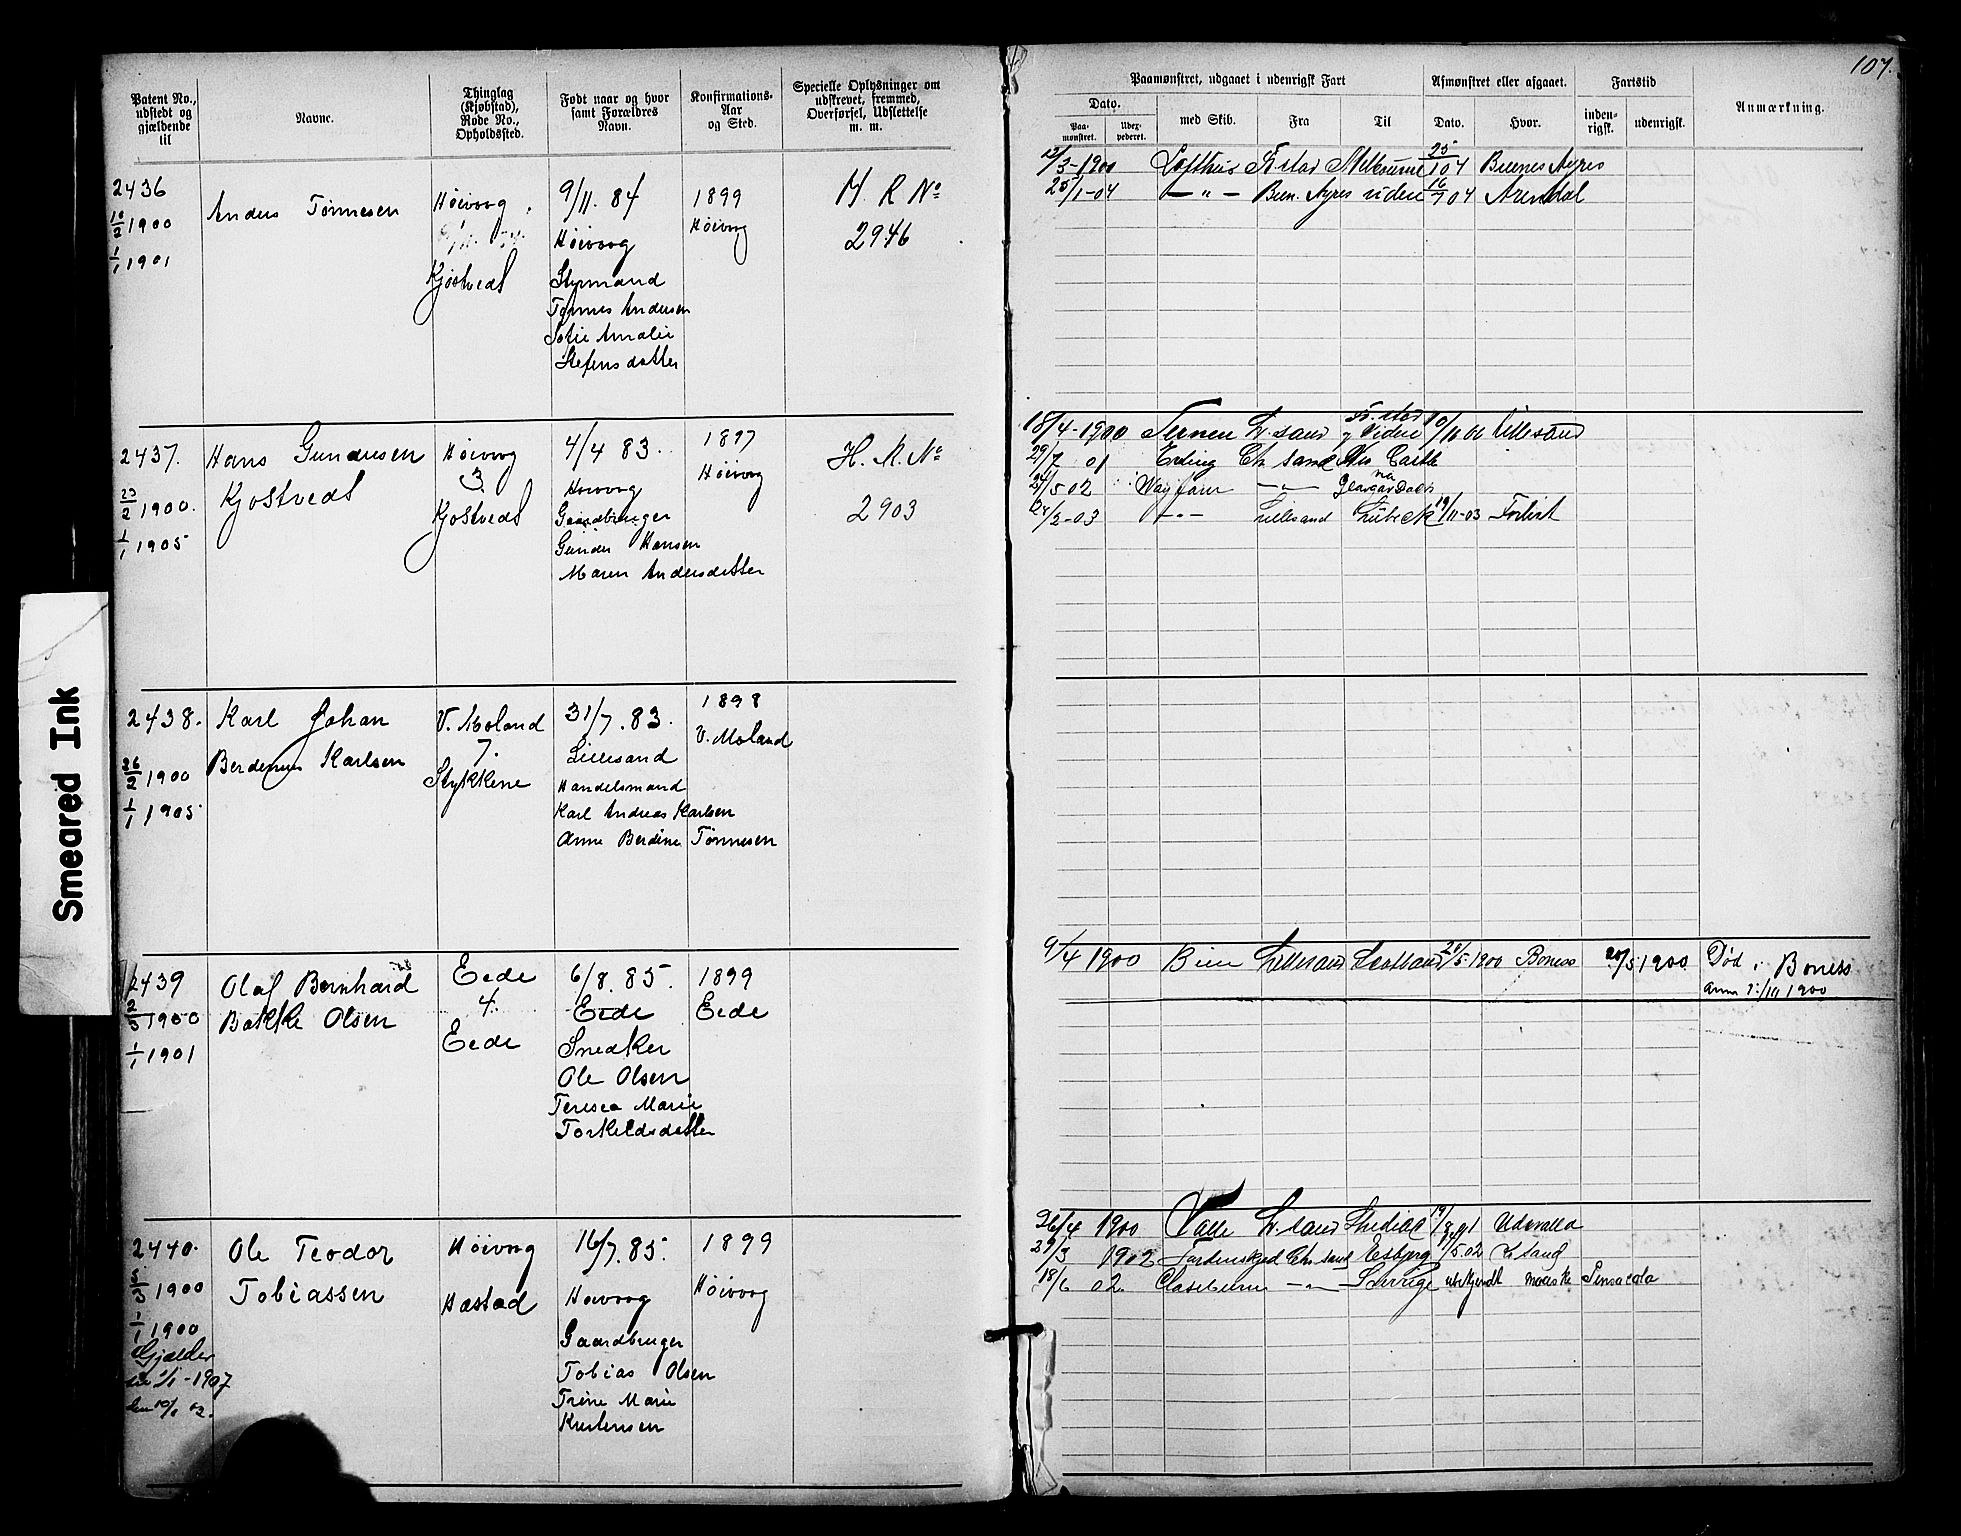 107.
Patent No., udstedt og gjældende til
Navne.
Thinglag (Kjøbstad), Rode No., Opholdssted.
Født naar og hvor samt Forældres Navn.
Konfirmations-Aar og Sted.
Specielle Oplysninger om udskrevet, fremmed, Overførsel, Udslettelse m. m.
Paamønstret, udgaaet i udenrigsk Fart
Dato.
Paa-mønstret.
Uder-pederet.
med Skib.
Fra
Til
Afmønstret eller afgaaet.
Dato.
Hvor.
Fartstid
inden-rigsk.
udenrigsk.
Anmærkning.
2436
16/2 1900
1/1 1901
Anders Tønnesen
Høivog
Kjøstvedt
9/11. 84
Høivog
Styrmand
Tønnes Andersen
Sofie Amalie
Stefensdatter
1899
Høivog
H. R No
2946
12/3-1900 Lofthus Fr.stad Melbourne 25/1 04 Buenos Ayres
25/1-04 — " — Buen. Ayres viden 16/7 04 Arendal
2437.
23/2 1900.
1/1 1905
Hans Gundersen
Kjøstvedt
Høivog
3
Kjøstvedt
4/4 83.
Høivog
Gaardbruger
Gunder Hansen
Maren Andersdatter
1897
Høivog
H. R. No
2903
18/4-1900 Ternen L. sand Fr. stad
y viden 10/10 00 Lillesand
29/7 01 Erling Ch sand New Castle
24/5 02 Wayfarer — " —
/2-03 — " — Lillesand Lübeck 19/11-03 Forlist
2438.
26/2 1900
1/1 1905
Karl Johan
Berdenius Karlsen
V. Moland
7.
Stykkene
31/7. 83.
Lillesand
Handelsmand
Karl Andreas Karlsen
Anne Berdine Tønnesen
1898
V. Moland
2439
2/3 1900
1/1 1901
Olaf Bernhard
Bakke Olsen
Eede
4
Eede
6/8. 85.
Eede
Snedker
Ole Olsen
Teresea Marie
Torkeldsdatter
1899
Eede
9/4 1900 Bien Lillesand Scotland 20/5 1900 Boness 20/5 1900 Død i Boness
Anm 1900
2440.
5/3 1900
1/1 1900
Gjælder
til 1/1-1907
den 10/1 02.
Ole Teodor
Tobiassen
Høivog
Hæstad
16/7. 85.
Høivog
Gaardbruger
Tobias Olsen
Trine Marie
Kristensen
1899
Høivog
26/4 1900 Valle L. sand Shediac 19/8 01 Udevalla
29/3 1902 Fordenskjold Ch. sand Esbjerg /5.02 K sand
18/6 02. Claseburn — " — Sverige ubekjendt maaske Pensacola
Smeared Ink